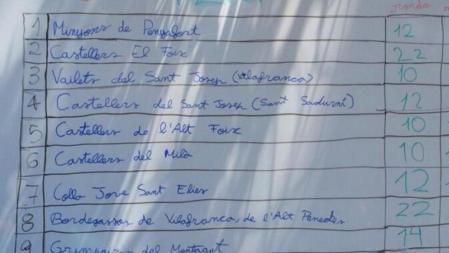 1 Minyons de Penyafort 12
2 Castellers El Foix 22
3 Vailets del Sant Josep (Vilafranca) 10
4 Castellers del Sant Josep (Sant Sadurní) 12
5 Castellers de l'Alt Foix 10
6 Castellers del Milà 10
7 Colla Jove Sant Elies 12
8 Bordegassos de Vilafranca de l'Alt Penedès 22
9 del Montagut 14